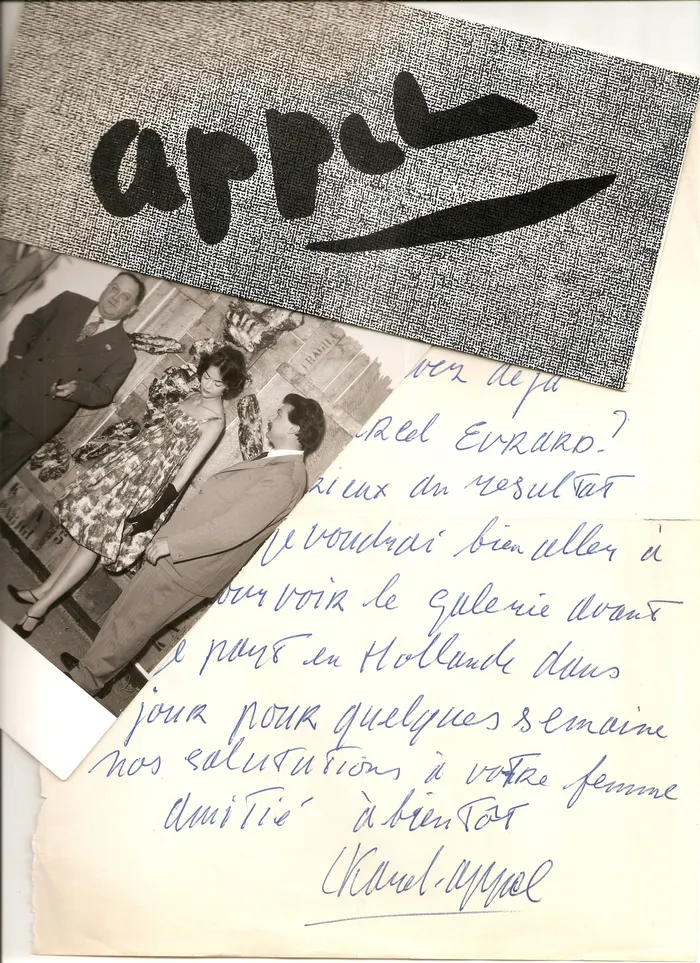 appel
FRAGILE
vez déjà
rcel EVRARD?
rieux du resultat
je voudrai bien aller à
our voir le galerie avant
e part en Hollande dans
jour pour quelques semaine
nos salutations à votre femme
amitié à bientôt
Karel. appel